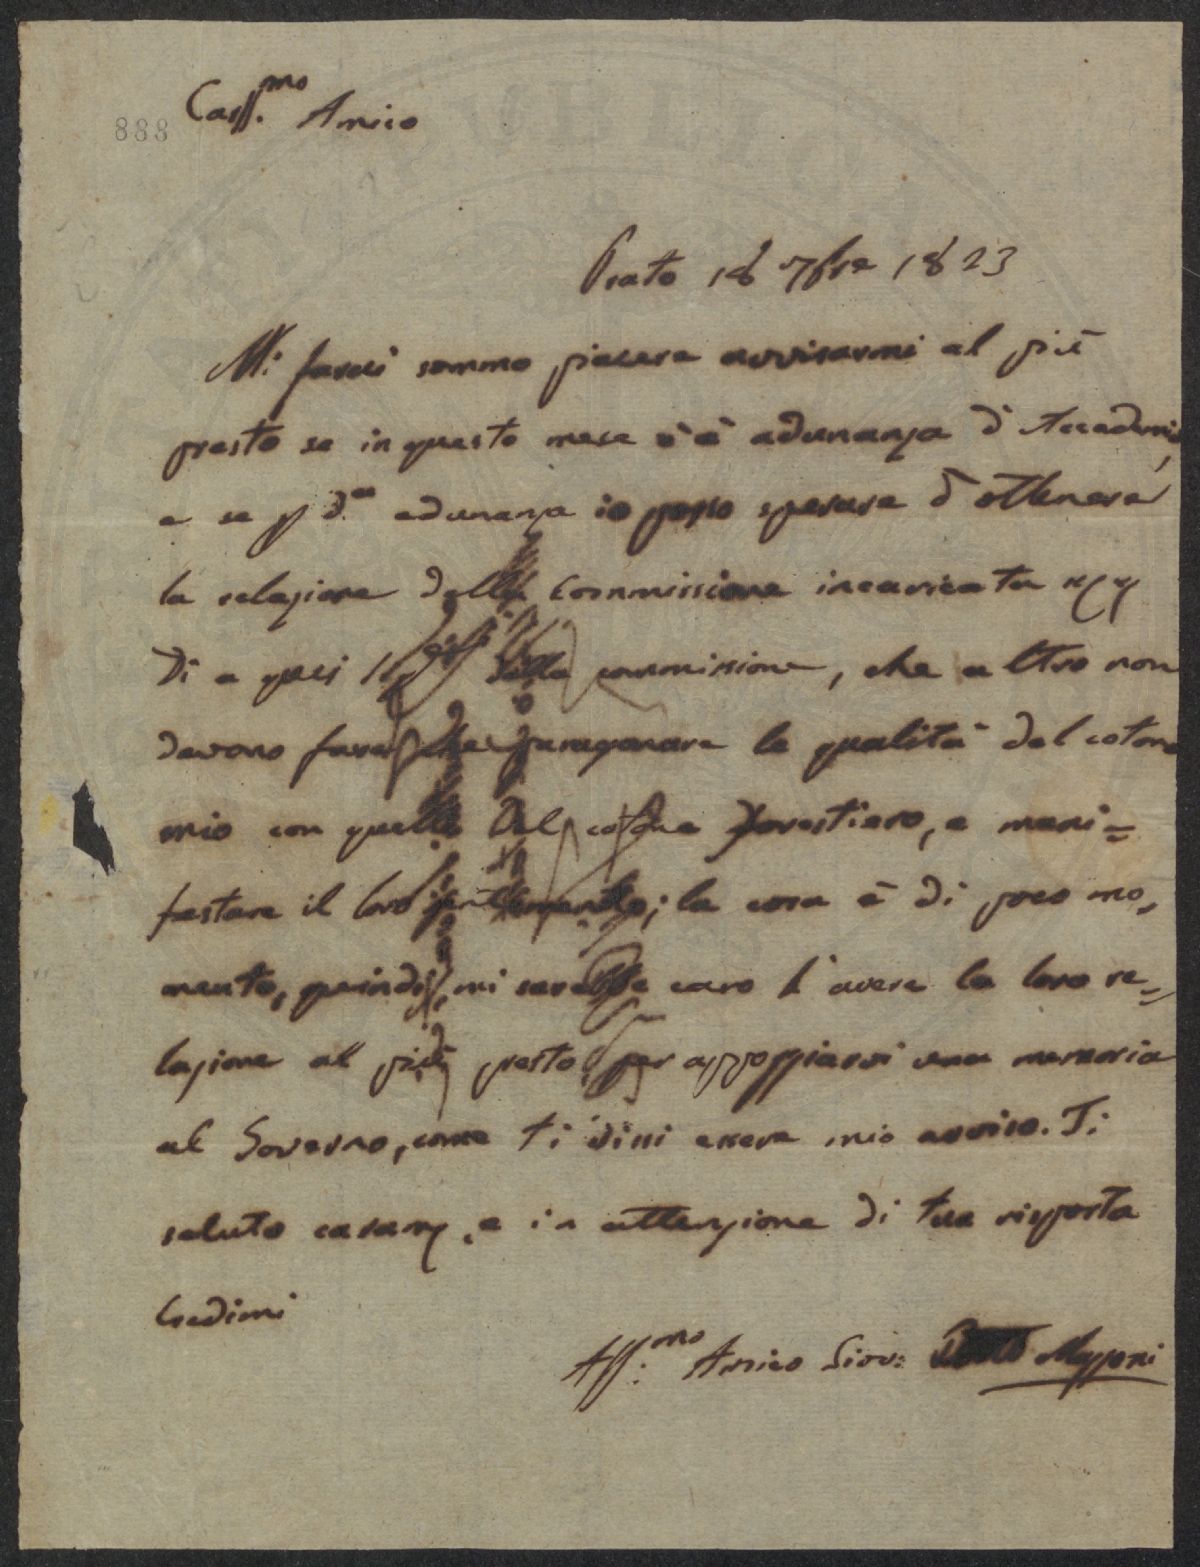 Cariss.mo Amico
888
Prato 18 7bre 1823
Mi farai sommo piacere avvisarmi al più
presto se in questo mese c'è adunanza d'Accademia,
e se p d.a adunanza io posso sperare d'ottenere
la relazione della Commissione incaricata
Di a quei della commissione, che altro non
devono fare che paragonare le qualità del cotone
mio con quelle Del cotone forestiero, e mani=
festare il loro sentimento; la cosa è di poco mo,
mento, quindi mi sarebbe caro l'avere la loro re=
lazione al più presto per appoggiarvi una memoria
al Governo, come ti dissi essere mio avviso. Ti
saluto caram, e in attenzione di tua risposta
Credimi
Aff.mo Amico Giov: Mazzoni